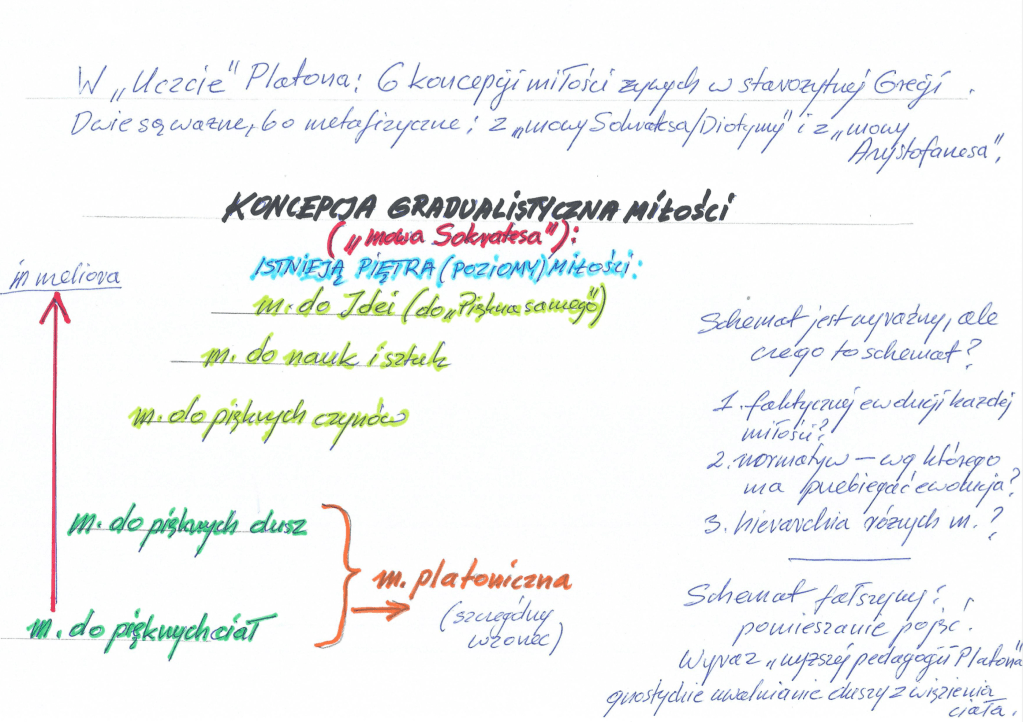 W „Uczcie" Platona: 6 koncepcji miłości żywych w starożytnej Grecji.
Dwie są ważne, bo metafizyczne: z „mowy Sokratesa/Diotymy" i z „mowy
Arystofanesa".
KONCEPCJA GRADUALISTYCZNA MIŁOŚCI
(„mowa Sokratesa"):
ISTNIEJĄ PIĘTRA (POZIOMY) MIŁOŚCI:
in meliora
m. do Idei (do „Piękna samego")
m. do nauk i sztuk
m. do pięknych czynów
m. do pięknych dusz
m. do pięknych ciał
m. platoniczna
(szczególny
wzorzec)
Schemat jest wyraźny, ale
czego to schemat?
1. faktycznej ewolucji każdej
miłości?
2. normatyw – wg którego
ma przebiegać ewolucja?
3. hierarchia różnych m.?
Schemat fałszywy:
pomieszanie pojęć.
Wyraz „wyższej pedagogii Platona"
gnostyckie uwalnianie duszy z więzienia
ciała.